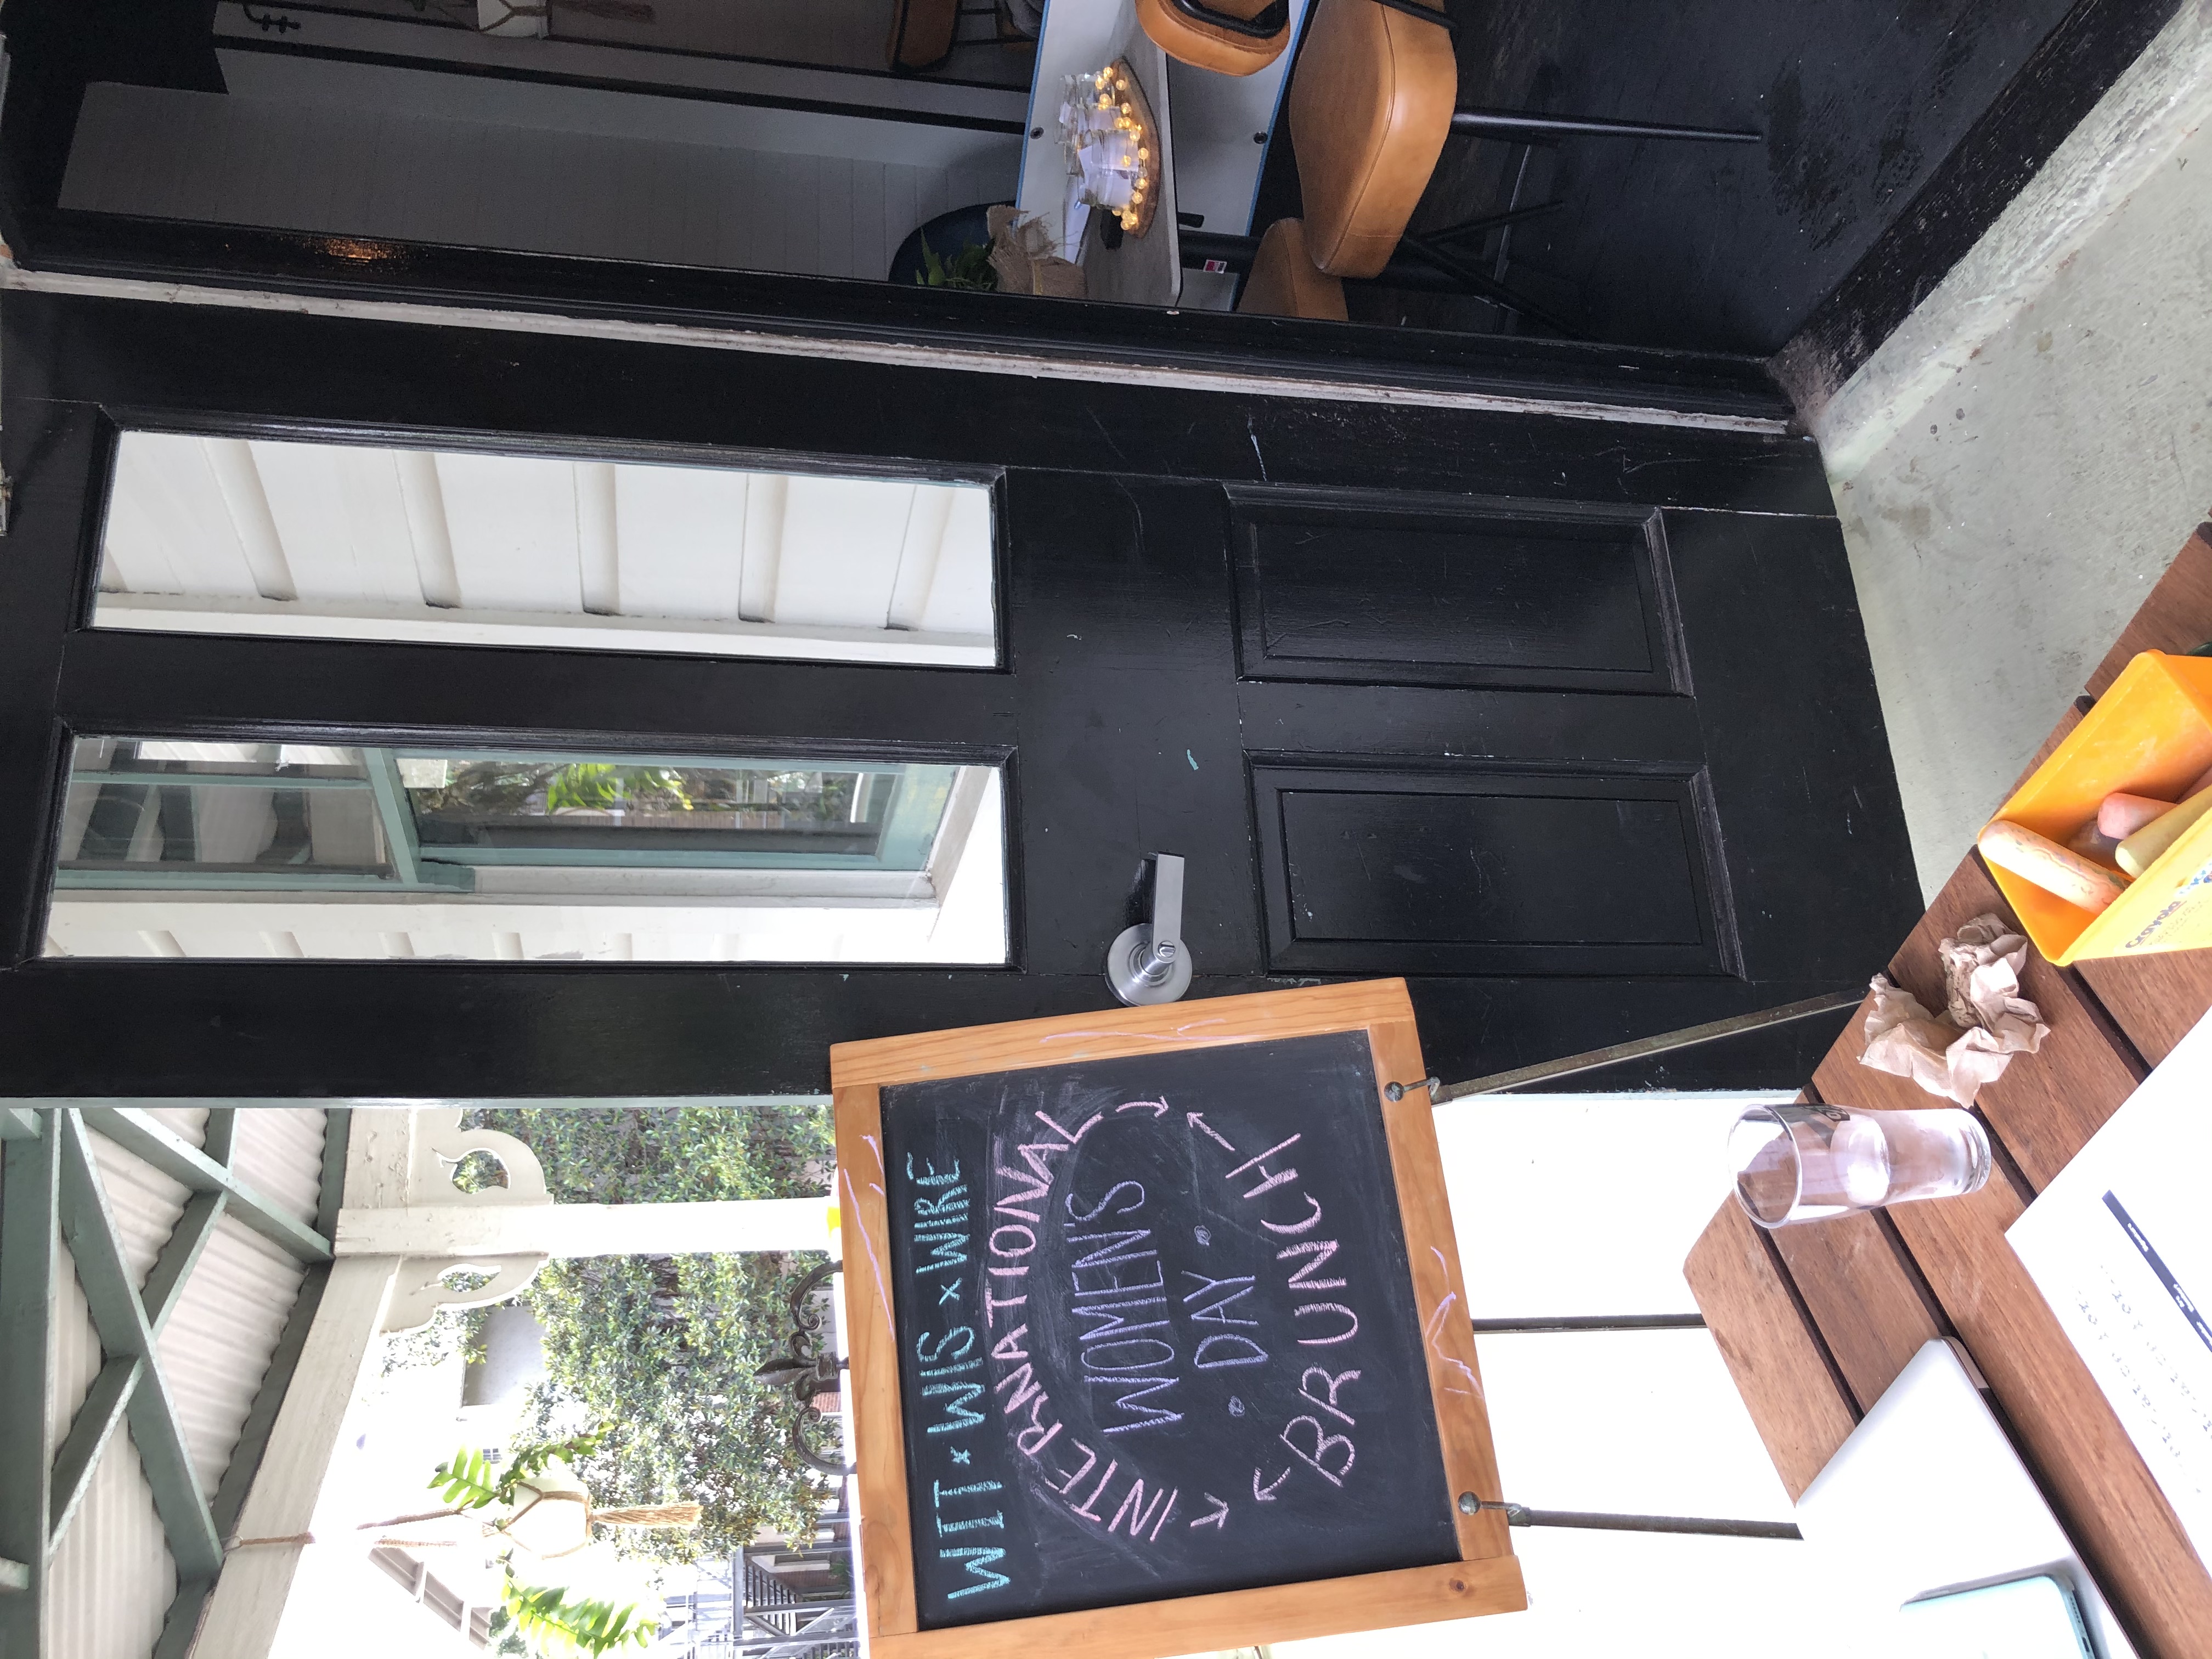 WIT x WIS x WIRE
INTERNATIONAL
WOMEN'S
DAY
BRUNCH
Crayola